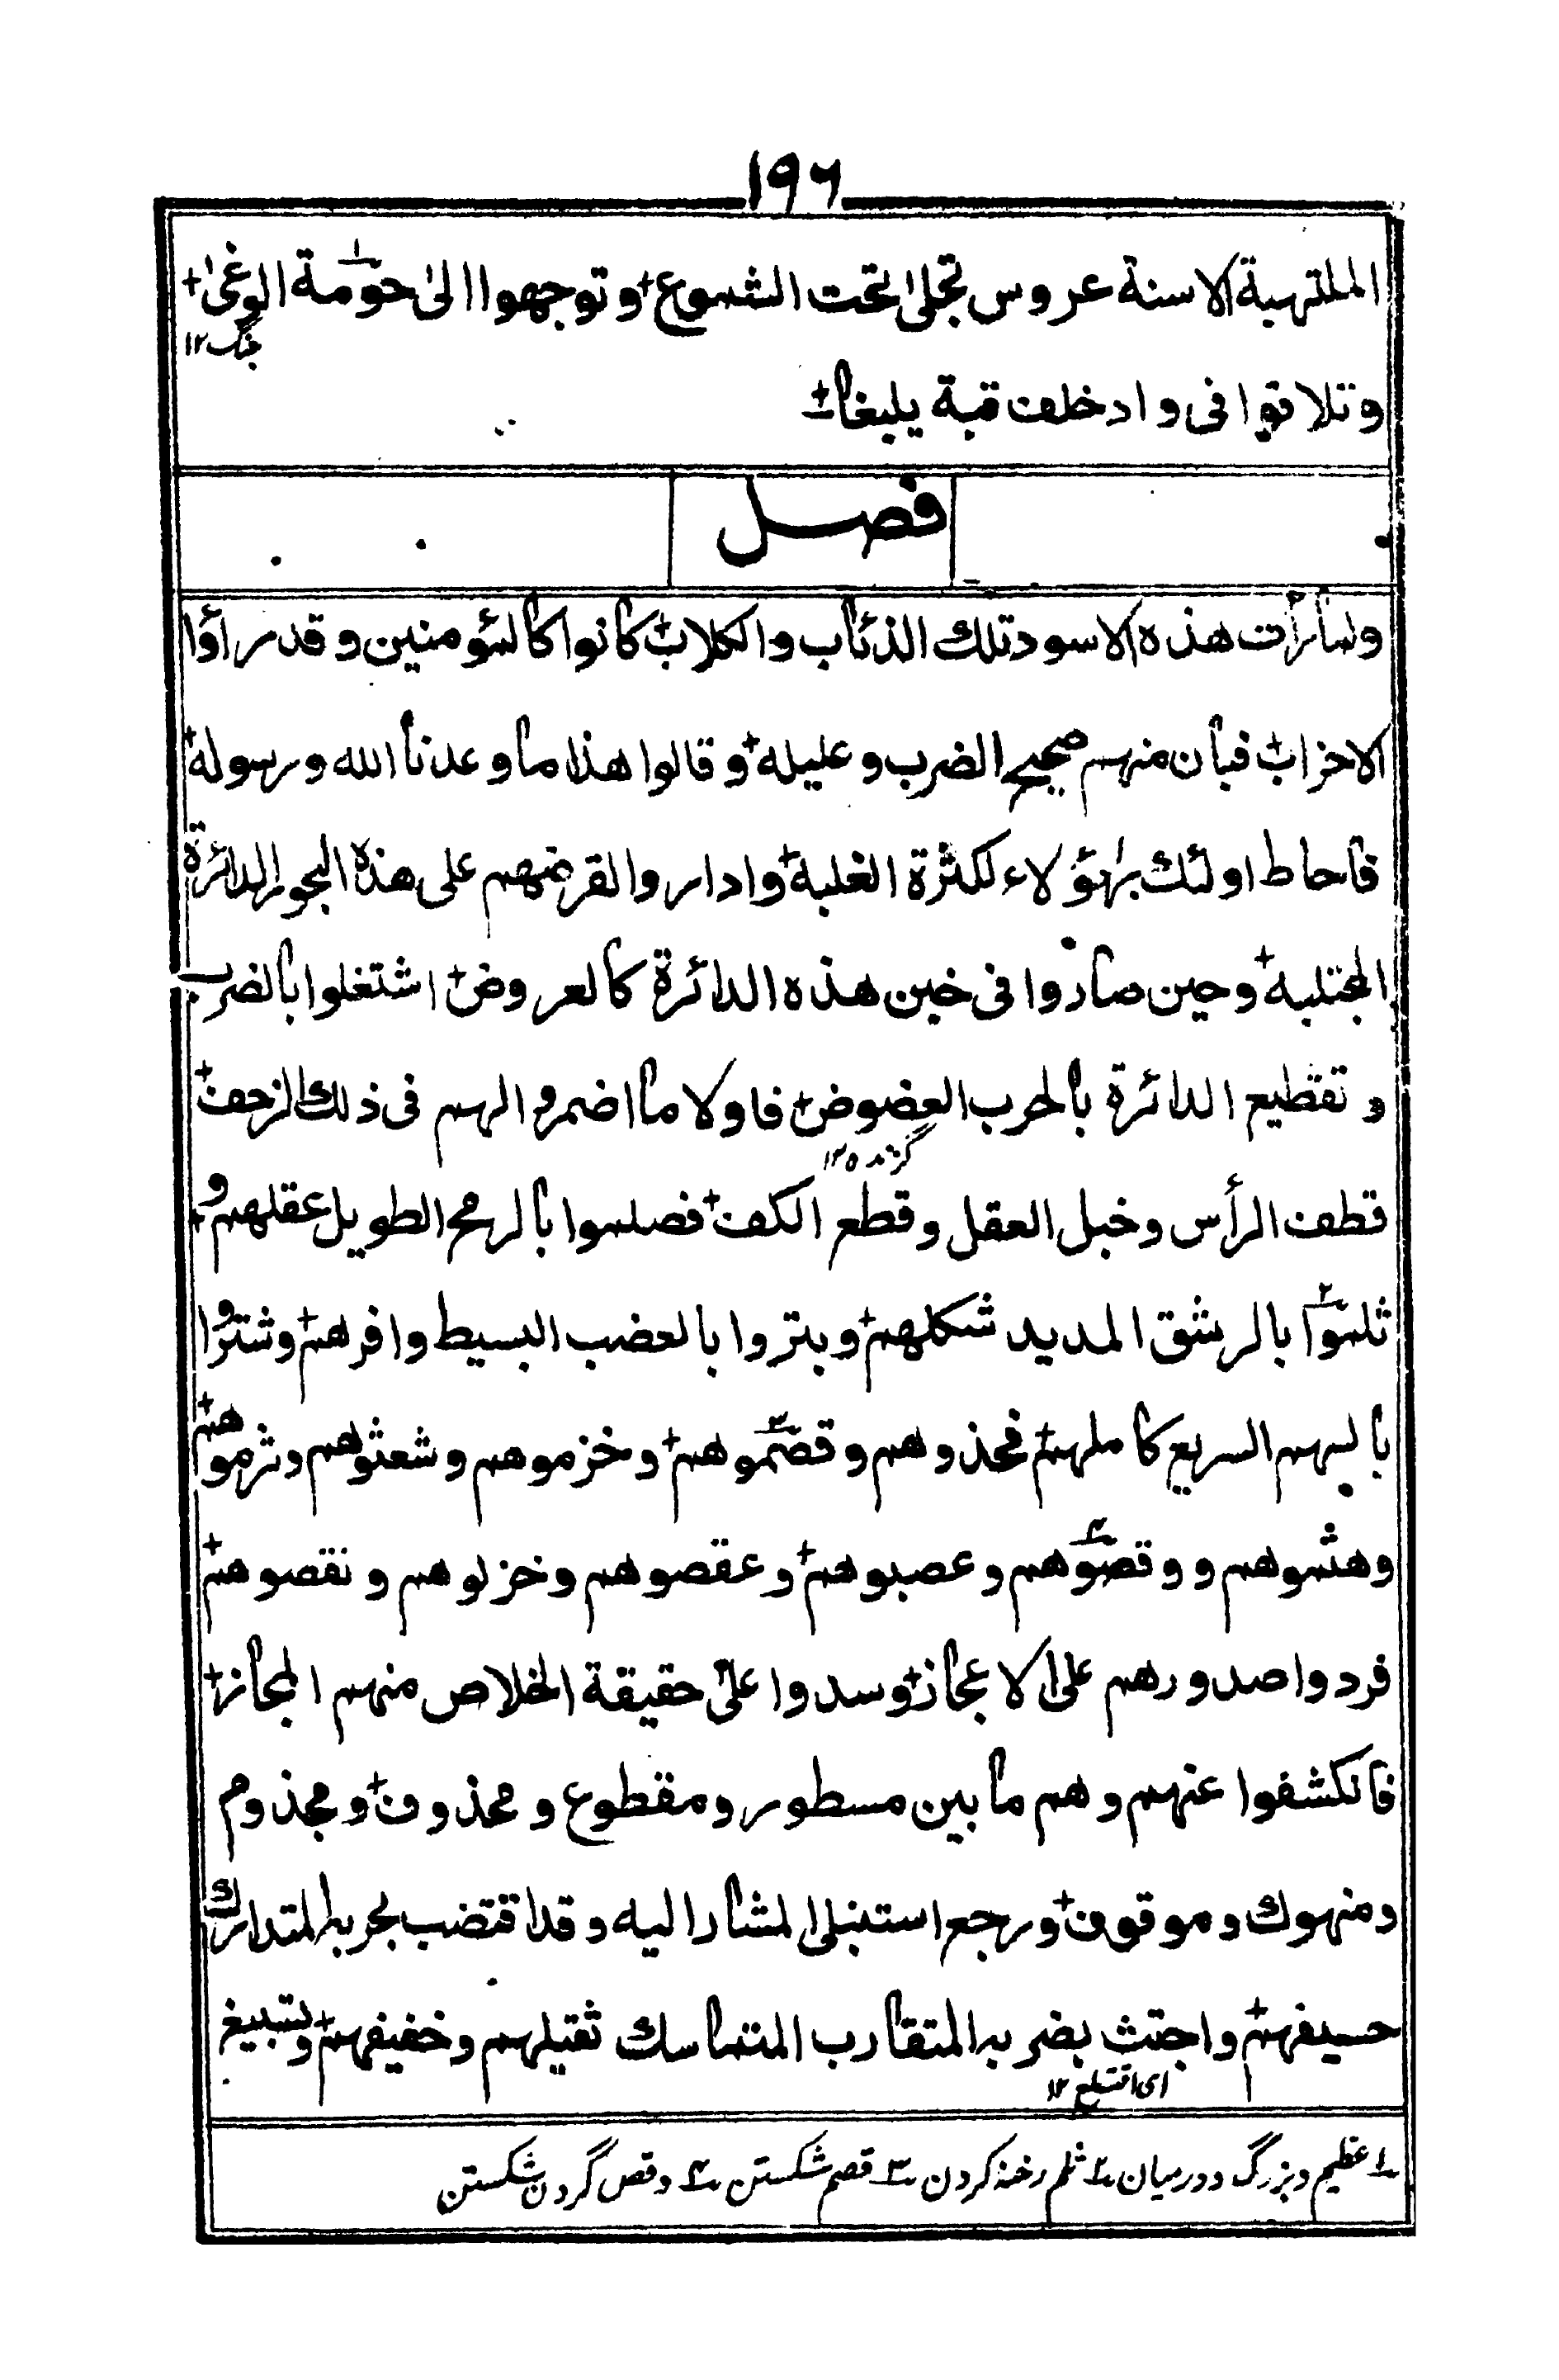 ١٩٦
الملتهبة الاسنة عروس تجلى تحت الشموع+ وتوجهوا الى حومة الوغى+
جنگ ١٢
وتلاقوا فى واد خلف قبة يلبغا+
فصل
ولما رأت هذه الاسود تلك الذئاب والكلاب+ كانوا كالمؤمنين وقد رأوا
الاحزاب+ فبان منهم صحيح الضرب وعليله+ وقالوا هذا ما وعدنا الله ورسوله+
فاحاط اولئك بهؤلاء لكثرة الغلبة+ وادار والقرضهم على هذه البحور الدائرة
المجتلبه+ وحين صاروا فى خبن هذه الدائرة كالعروض+ اشتغلوا بالضرب
و تقطيع الدائرة بالحرب العضوض+ فاولا ما اضمروا لهم فى ذلك الزحف+
گزنده ١٢
قطف الرأس وخبل العقل وقطع الكف+ فصلموا بالرمح الطويل عقلهم+ و
ثلموا بالرشق المديد شكلهم+ وبتروا بالعضب البسيط وافرهم+ وشتروا
بالسهم السريع كاملهم+ فحذوهم وقصموهم+ وخزموهم وشعثوهم وثرموهم+
وهشموهم ووقصوهم وعصبوهم+ وعقصوهم وخزلوهم ونقصوهم+
فردوا صدورهم على الاعجاز+ وسدوا على حقيقة الخلاص منهم المجاز+
فانكشفوا عنهم وهم ما بين مسطور ومقطوع ومحذوف+ ومجذوم
ومنهوك وموقوف+ ورجع استنبلى المشار اليه وقد اقتضب بحربه المتدارك
حسيفهم+ واجتث بضربه المتقارب المتماسك ثقيلهم وخفيفهم+ وتسبيغ
اى اقتلع ١٢
١ عظيم و بزرگ و درميان ٢ ثلم رخنه كردن ٣ قصم شكستن ٤ وقص گردن شكستن